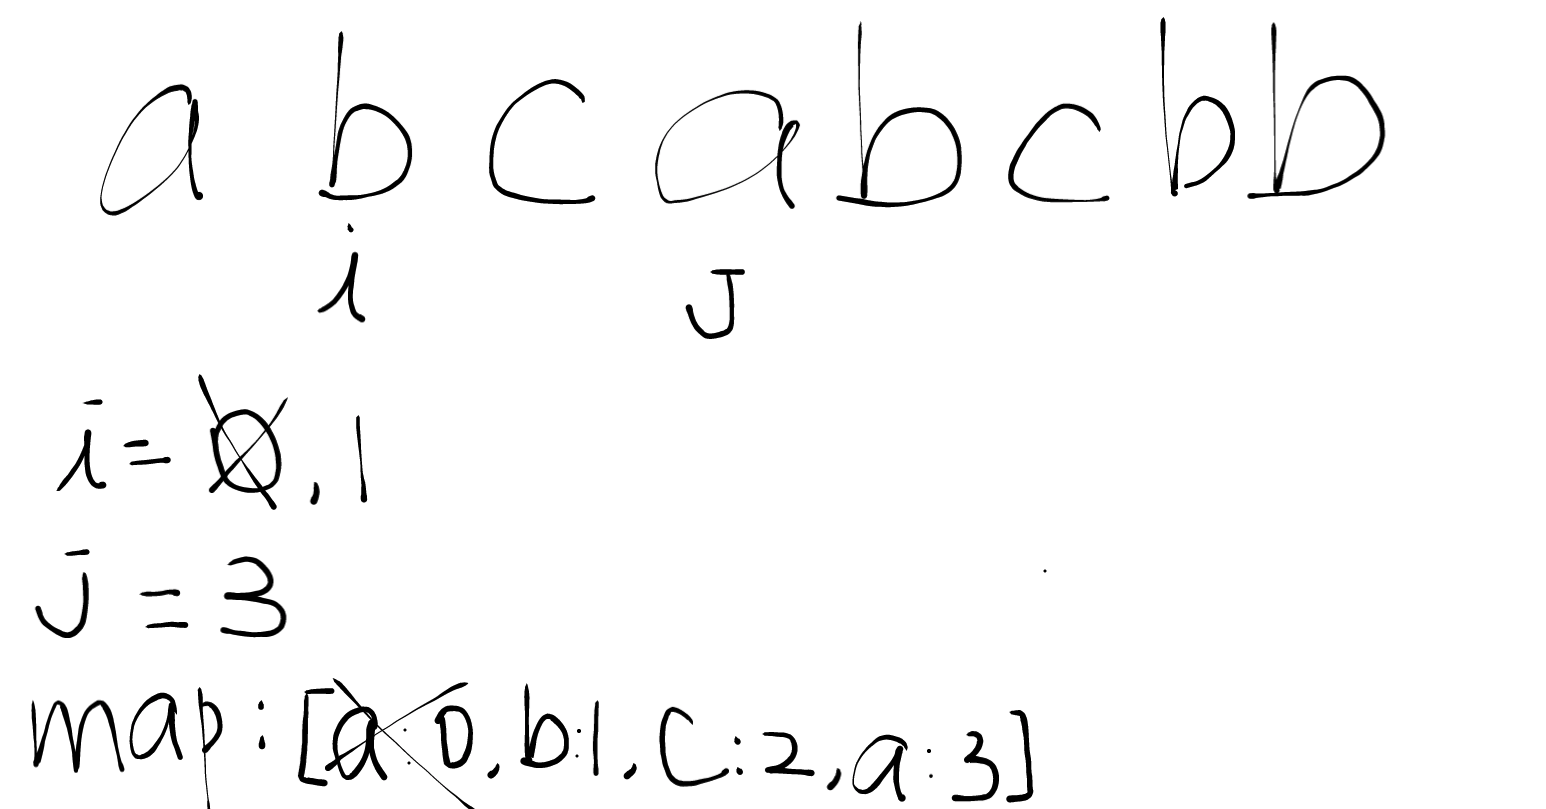 a b c a b c b b
i J
i = 0, 1
J = 3
map: [a:0, b:1, c:2, a:3]